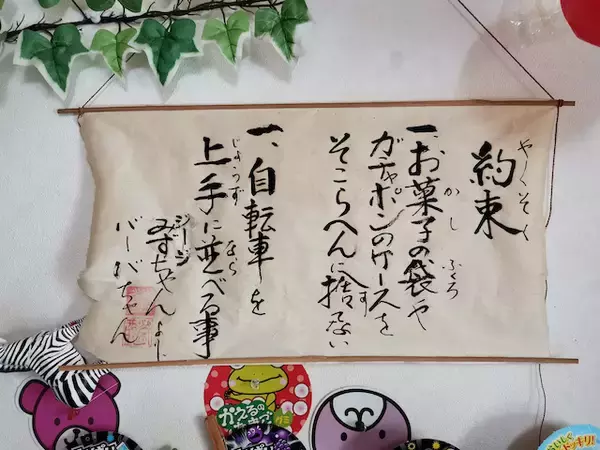 約束
やくそく
一、お菓子の袋や
かし
ふくろ
ガチャポンのケースを
そこらへんに捨てない
す
一、自転車を
上手に並べる事
じょうず
なら
みずちゃん より
ジージ
バーバちゃん
かえるの
たまご
グミ